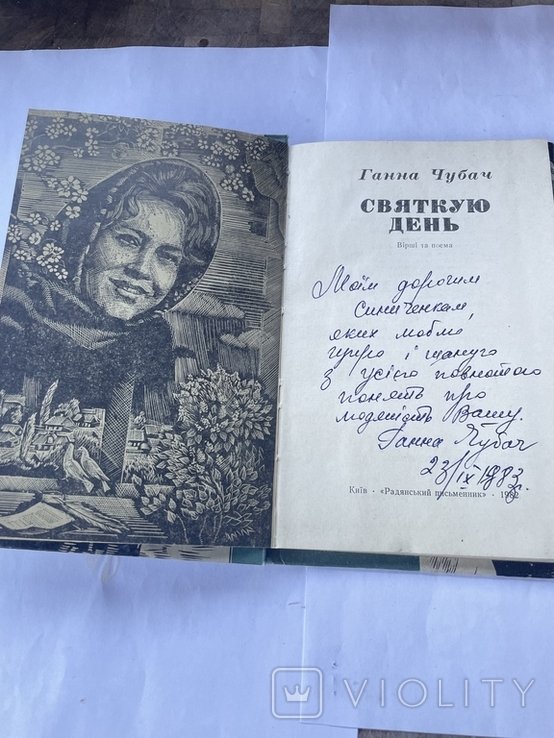 Ганна Чубач
СВЯТКУЮ
ДЕНЬ
Вірші та поема
Моїм дорогим
Синиченкам,
яких люблю
щиро і шаную
з усією повнотою
понять про
людяність Вашу.
Ганна Чубач
23/IX-1983 р.
Київ · «Радянський письменник» · 1982
VIOLITY